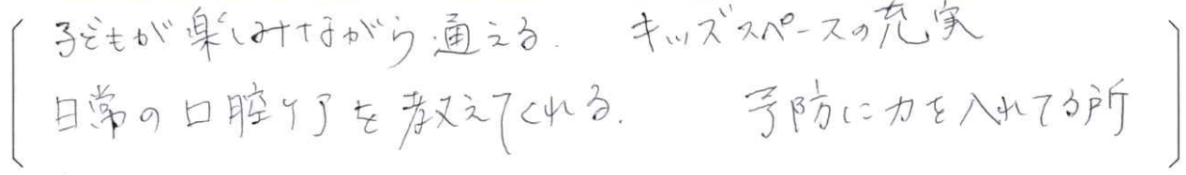 子どもが楽しみながら通える. キッズスペースの充実
日常の口腔ケアを教えてくれる. 予防に力を入れてる所